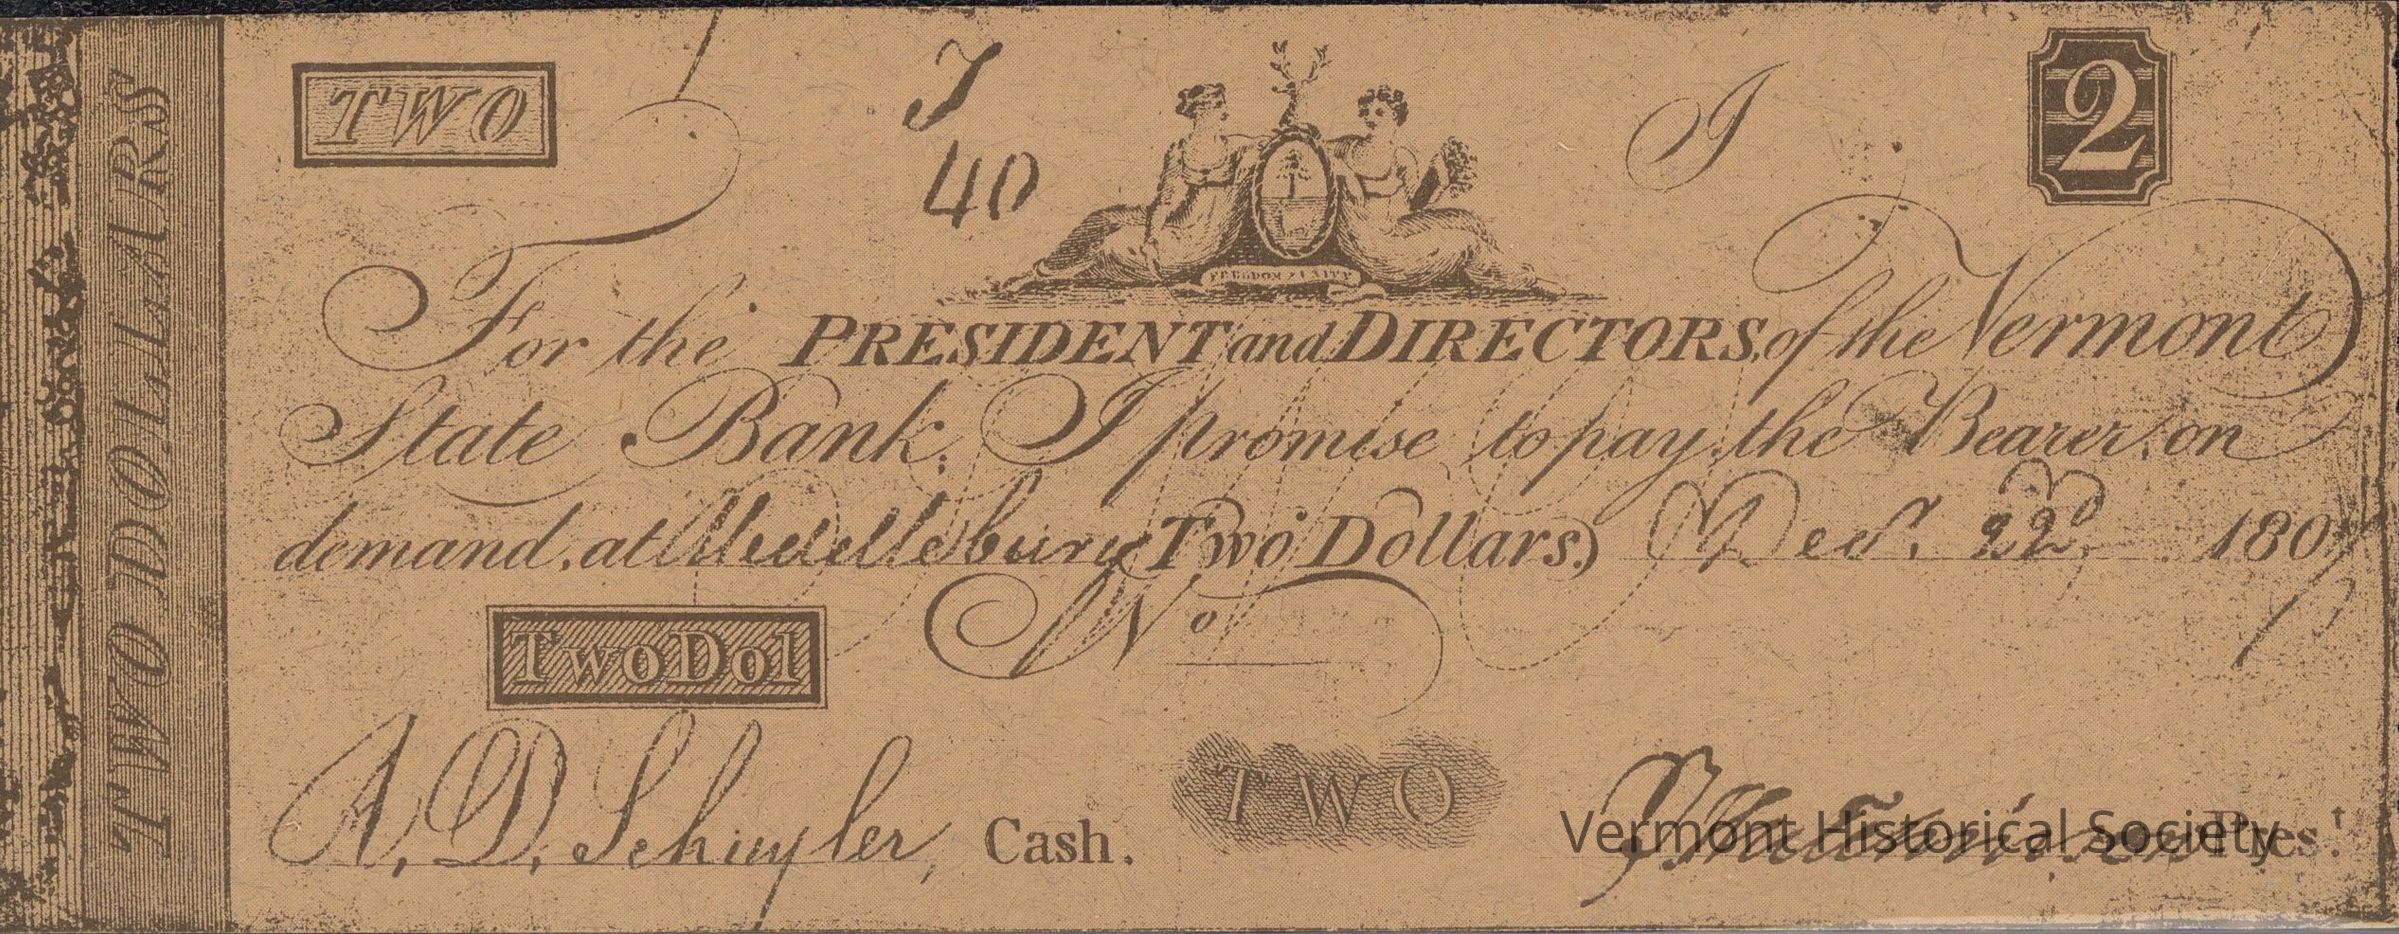 TWO DOLLARS
TWO
I
40
I
2
FREEDOM & UNITY
For the PRESIDENT and DIRECTORS, of the Vermont
State Bank, I promise to pay the Bearer, on
demand, at Middlebury Two Dollars.) Decr. 22d, 1807
TwoDol
No
TWO
A. D. Schuyler, Cash.
Prest.
Vermont Historical Society